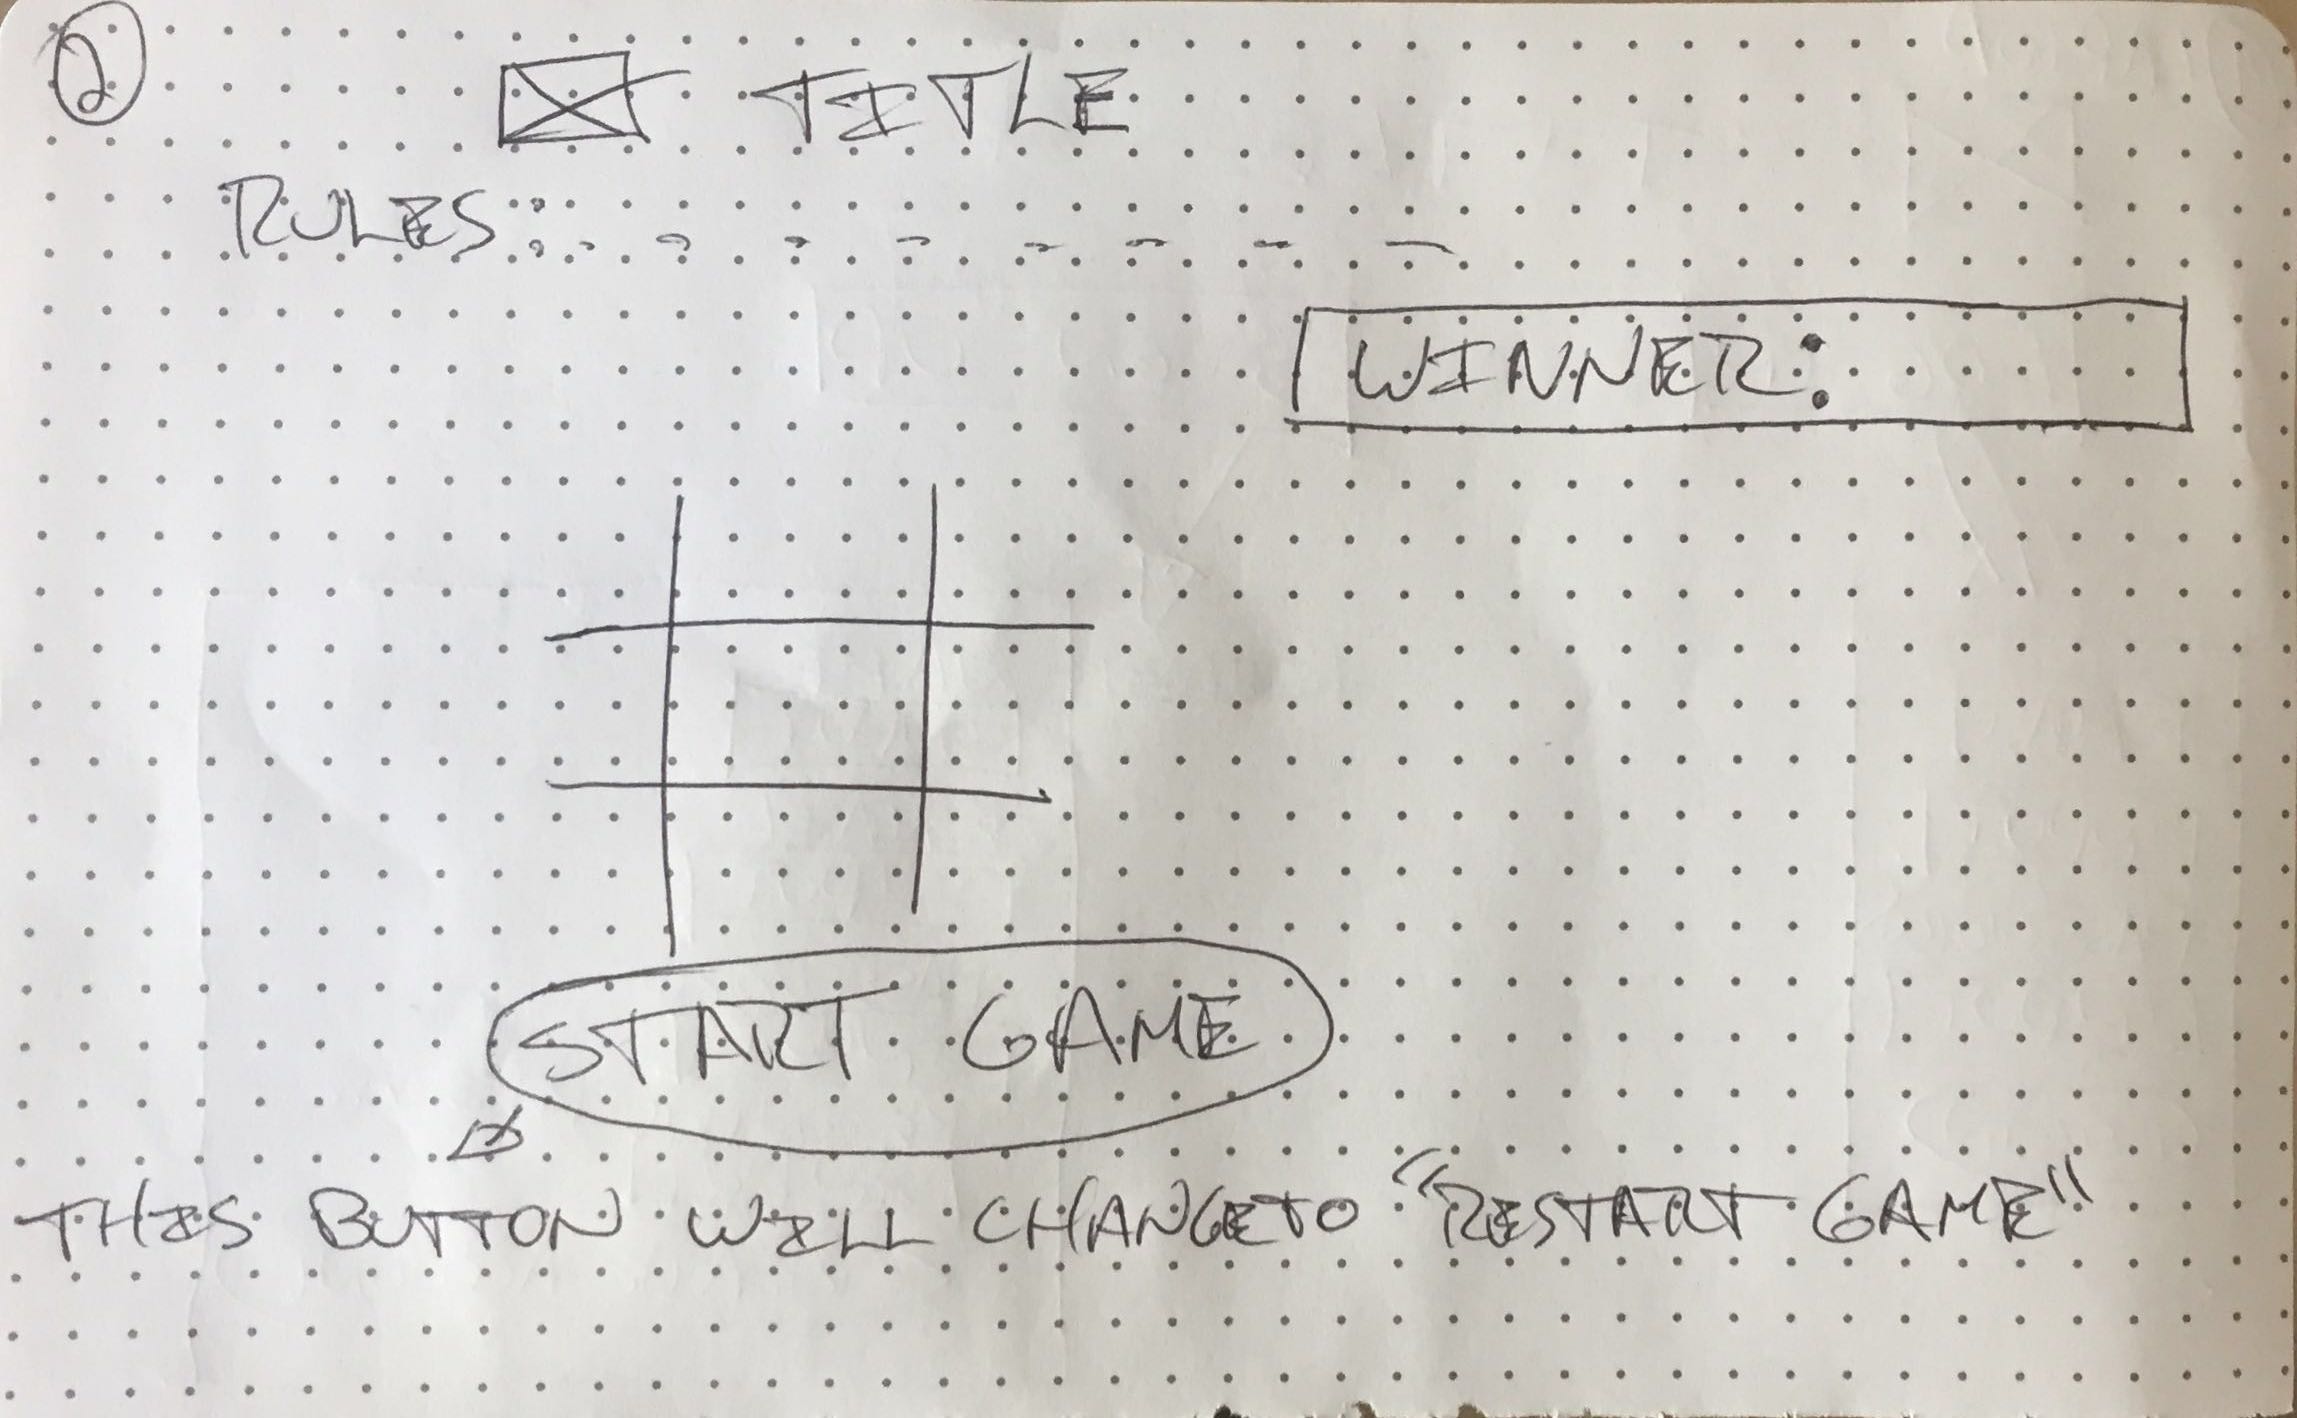 2
TITLE
RULES:
WINNER:
START GAME
THIS BUTTON WILL CHANGE TO "RESTART GAME"